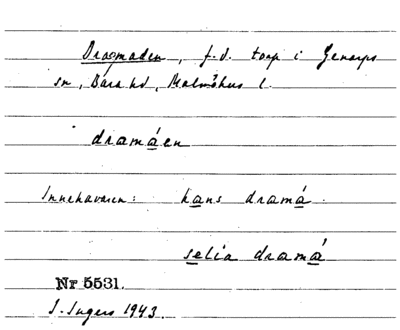 Dragmaden, f.d. torp i Genarps
sn, Bara hd, Malmöhus l.
dramáen
Innehavaren: hans dramá.
selia dramá
Nr 5531.
I. Ingers 1943.